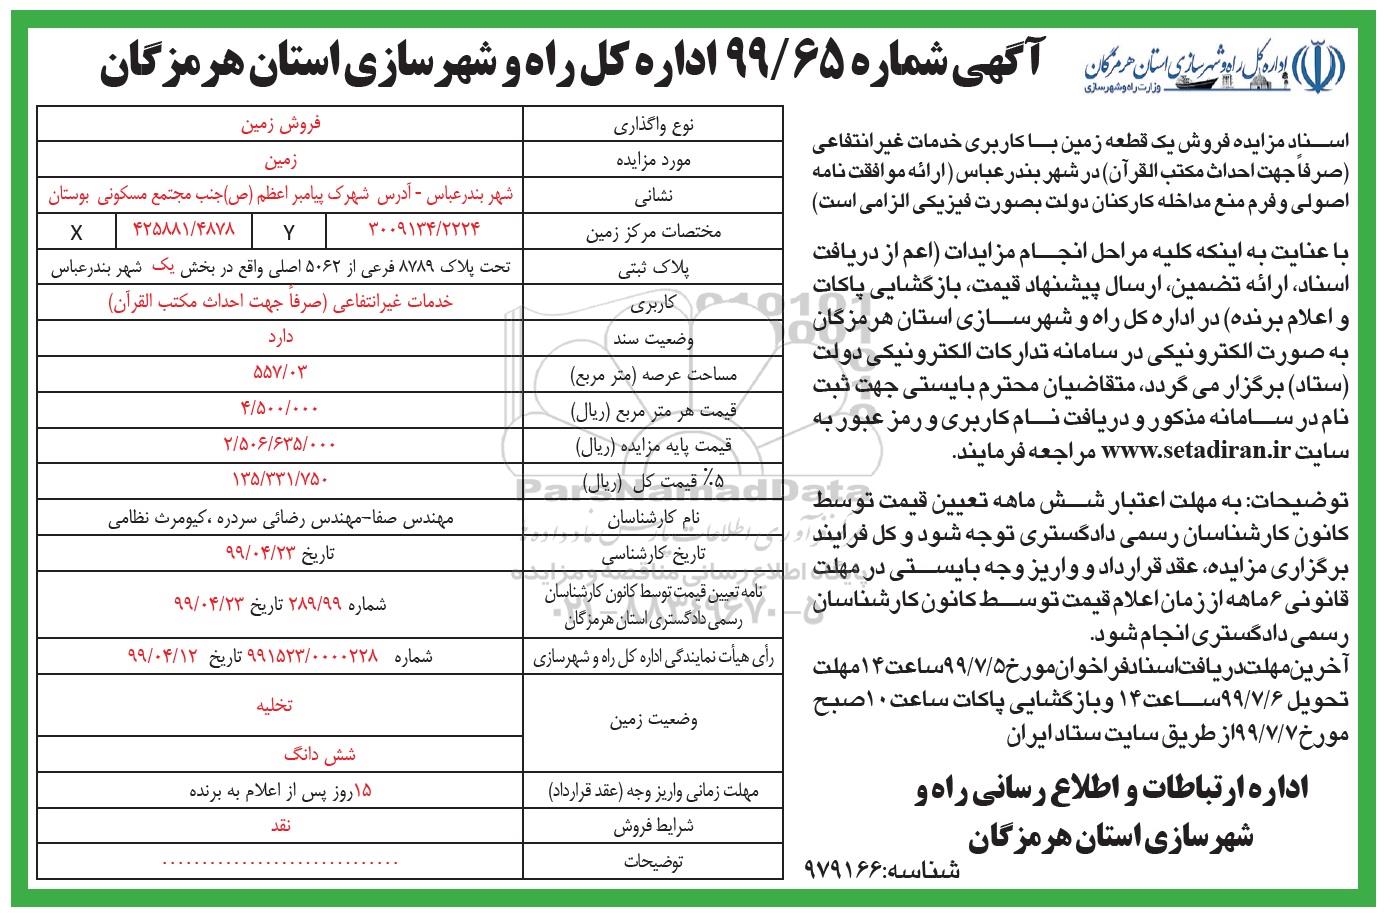 آگهی شماره ۹۹/۶۵ اداره کل راه و شهرسازی استان هرمزگان
اداره کل راه و شهرسازی استان هرمزگان
وزارت راه و شهرسازی
اسناد مزایده فروش یک قطعه زمین با کاربری خدمات غیرانتفاعی
(صرفاً جهت احداث مکتب القرآن) در شهر بندرعباس (ارائه موافقت نامه
اصولی و فرم منع مداخله کارکنان دولت بصورت فیزیکی الزامی است)
با عنایت به اینکه کلیه مراحل انجام مزایدات (اعم از دریافت
اسناد، ارائه تضمین، ارسال پیشنهاد قیمت، بازگشایی پاکات
و اعلام برنده) در اداره کل راه و شهرسازی استان هرمزگان
به صورت الکترونیکی در سامانه تدارکات الکترونیکی دولت
(ستاد) برگزار می گردد، متقاضیان محترم بایستی جهت ثبت
نام در سامانه مذکور و دریافت نام کاربری و رمز عبور به
سایت www.setadiran.ir مراجعه فرمایند.
توضیحات: به مهلت اعتبار شش ماهه تعیین قیمت توسط
کانون کارشناسان رسمی دادگستری توجه شود و کل فرایند
برگزاری مزایده، عقد قرارداد و واریز وجه بایستی در مهلت
قانونی ۶ماهه از زمان اعلام قیمت توسط کانون کارشناسان
رسمی دادگستری انجام شود.
آخرین مهلت دریافت اسناد فراخوان مورخ ۹۹/۷/۵ ساعت ۱۴ مهلت
تحویل ۹۹/۷/۶ ساعت ۱۴ و بازگشایی پاکات ساعت ۱۰ صبح
مورخ ۹۹/۷/۷ از طریق سایت ستاد ایران
اداره ارتباطات و اطلاع رسانی راه و
شهرسازی استان هرمزگان
شناسه: ۹۷۹۱۶۶
نوع واگذاری فروش زمین
مورد مزایده زمین
نشانی شهر بندرعباس - آدرس شهرک پیامبر اعظم (ص)جنب مجتمع مسکونی بوستان
مختصات مرکز زمین ۳۰۰۹۱۳۴/۲۲۲۴ Y ۴۲۵۸۸۱/۴۸۷۸ X
پلاک ثبتی تحت پلاک ۸۷۸۹ فرعی از ۵۰۶۲ اصلی واقع در بخش یک شهر بندرعباس
کاربری خدمات غیرانتفاعی (صرفاً جهت احداث مکتب القرآن)
وضعیت سند دارد
مساحت عرصه (متر مربع) ۵۵۷/۰۳
قیمت هر متر مربع (ریال) ۴/۵۰۰/۰۰۰
قیمت پایه مزایده (ریال) ۲/۵۰۶/۶۳۵/۰۰۰
۵٪ قیمت کل (ریال) ۱۳۵/۳۳۱/۷۵۰
نام کارشناسان مهندس صفا-مهندس رضائی سردره ،کیومرث نظامی
تاریخ کارشناسی تاریخ ۹۹/۰۴/۲۳
نامه تعیین قیمت توسط کانون کارشناسان
رسمی دادگستری استان هرمزگان شماره ۲۸۹/۹۹ تاریخ ۹۹/۰۴/۲۳
رأی هیأت نمایندگی اداره کل راه و شهرسازی شماره ۹۹۱۵۲۳/۰۰۰۰۲۲۸ تاریخ ۹۹/۰۴/۱۲
وضعیت زمین تخلیه
شش دانگ
مهلت زمانی واریز وجه (عقد قرارداد) ۱۵روز پس از اعلام به برنده
شرایط فروش نقد
توضیحات ..............................
ParsNamadData
پایگاه اطلاع رسانی مناقصه و مزایده
۰۲۱-۸۸۳۴۹۶۷۰-۵